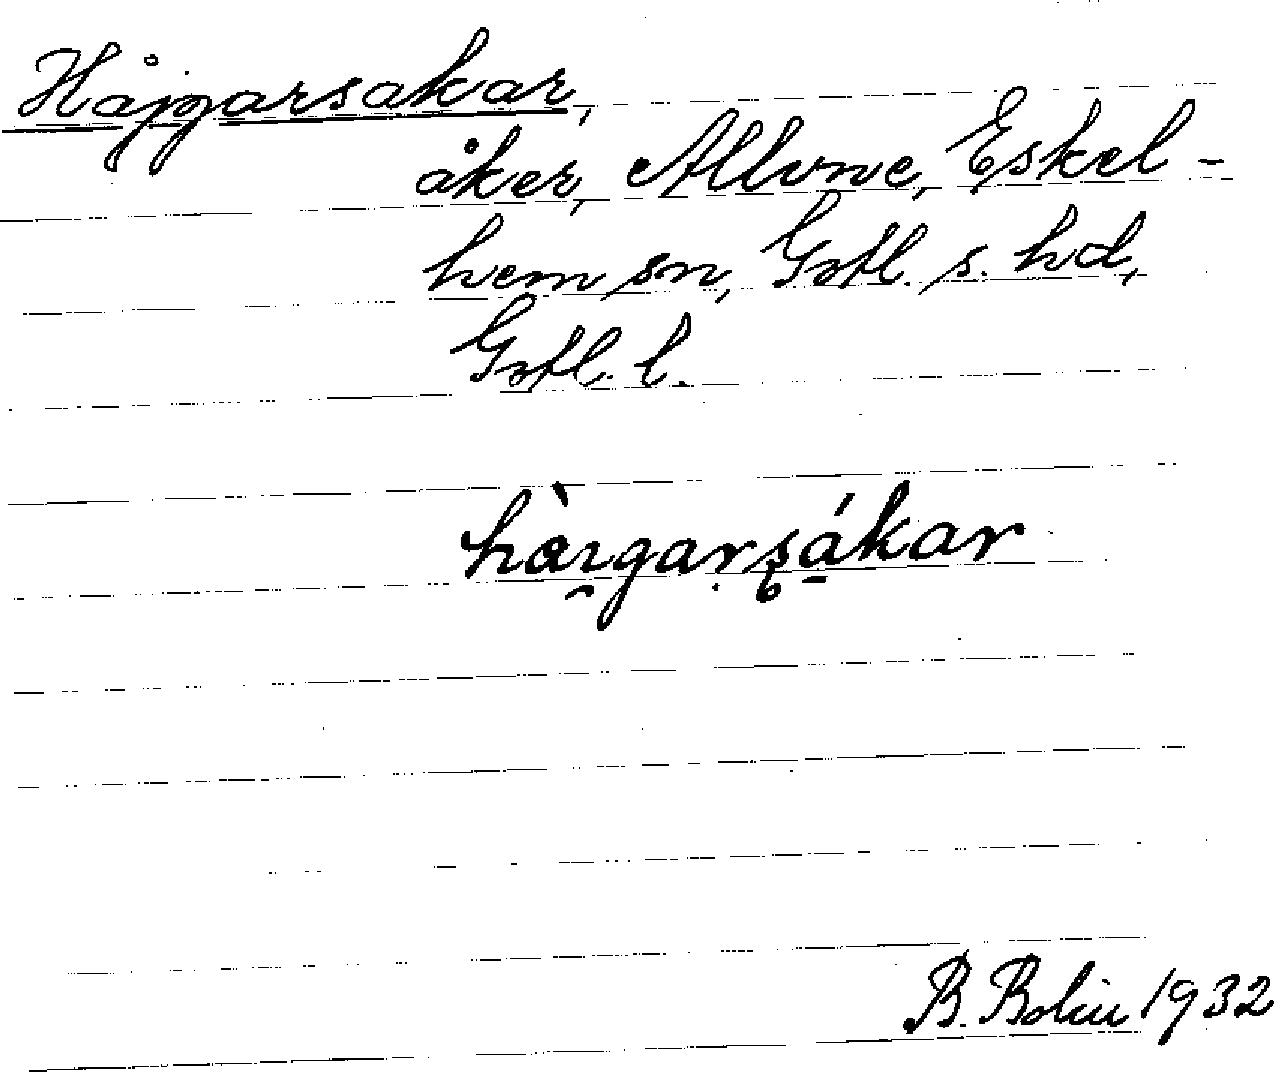 Håjgarsakar,
åker, Allvne, Eskel-
hem sn, Gotl. s. hd,
Gotl. l.
hàı̯gaṛʂá̱kar
B. Bolin 1932